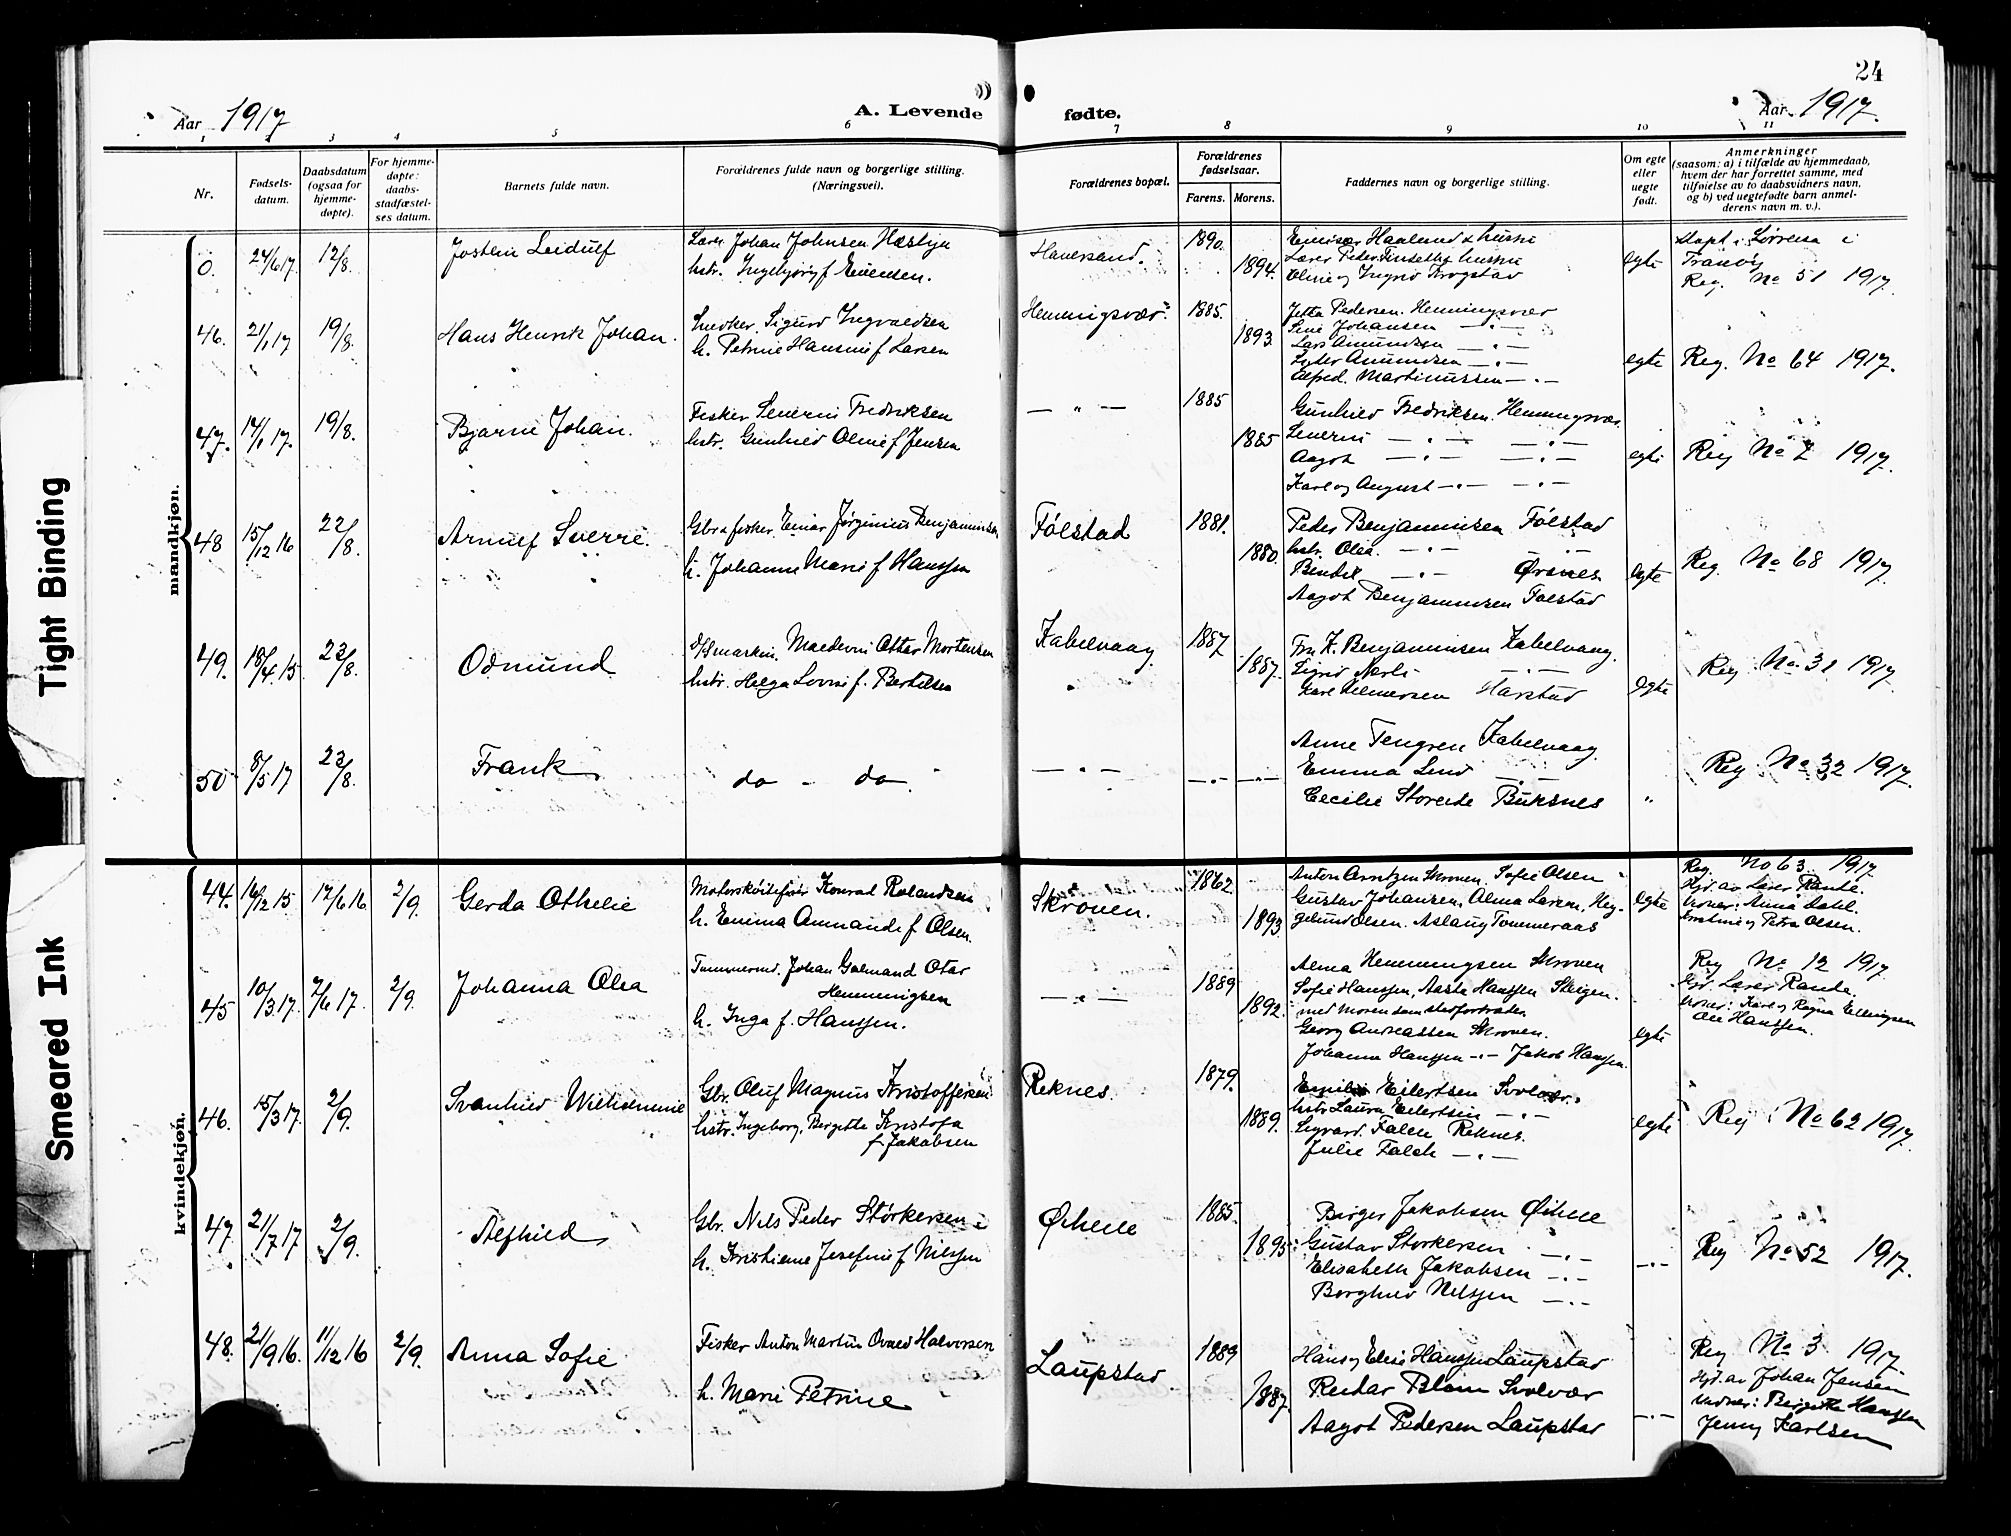 24
Aar 1917
A. Levende fødte.
Aar 1917.
1 2 3 4 5 6 7 8 9 10 11
Nr.
Fødsels-
datum.
Daabsdatum
(ogsaa for
hjemme-
døpte).
For hjemme-
døpte:
daabs-
stadfæstel-
ses datum.
Barnets fulde navn.
Forældrenes fulde navn og borgerlige stilling.
(Næringsvei).
Forældrenes bopæl.
Forældrenes
fødselsaar.
Farens. Morens.
Faddernes navn og borgerlige stilling.
Om egte
eller
uegte
født.
Anmerkninger
(saasom: a) i tilfælde av hjemmedaab,
hvem der har forrettet samme, med
tilføielse av to daabsvidners navn,
og b) ved uegtefødte barn anmel-
derens navn m. v.).
mandkjøn.
0. 24/6 17. 12/8. Jostein Leidulf
Lærer Johan Johnsen
hstr. Ingebjørg f Evensen.
1890.
1894.
Haalund & hustru
Lærer Peder hustru
Oline og Ingrid Krogstad
egte
døpt i Sørreisa i
Tranøy
Reg. No 51 1917.
46. 21/1 17 19/8. Hans Henrik Johan.
Snedker Sigurd Ingvaldsen
h. Petrine Hansine f Larsen
Henningsvær. 1885.
1893.
Jetta Pedersen. Henningsvær
Sine Johansen —"—
Lars Amundsen —"—
Peder Amundsen —"—
Alfred. Martinussen —"—
egte
Reg. No 64 1917.
47. 14/1 17. 19/8. Bjarne Johan.
Fisker Severin Fredriksen
hstr. Gunhild Oline f Jensen
— " — 1885
1885
Gunhild Fredriksen. Henningsvær.
Severin —"— —"—
Aagot —"— —"—
Karl og August —"— —"—
egte
Reg No 7 1917.
48 15/12 16 22/8. Arnulf Sverre.
Gbr & fisker Einar Jørginius Benjaminsen
h. Johanne Marie f Hanssen
Følstad 1881.
1880.
Peder Benjaminsen Følstad
hstr. Olea. —"— —"—
Bendik —"— Ørsnes
Aagot Benjaminsen Følstad
egte
Reg. No 68 1917.
49. 18/4 15 23/8. Odmund
D/Smaskin. Ottar Mortensen
hstr. Helga Lovise f. Bertelsen
Kabelvaag. 1887
1887.
Fru K. Benjaminsen Kabelvaag.
Sigrid —"—
Kare Hilmersen Harstad
egte
Reg No 31 1917
50 8/5 17 23/8. Frank
do - do
— " — — " — — " —
Anne Tengren Kabelvaag.
Emma Lind —"—
Cecilie Storeide Buksnes
"
Reg No 32 1917.
kvindekjøn.
44. 16/12 15 17/6 16 2/9. Gerda Othelie
Motorskøitefører Konrad Rolandsen
h. Emma Amanda f Olsen.
Skroven. 1862.
1893.
Anton Arntzen Skroven. Sofie Olsen
Gustav Johansen, Alma Larsen, Hey-
gelund Olsen. Aslaug Tommeraas
egte
Reg. No 63. 1917
Hjd. av Lærer Rante.
Vidner: Anna Dahl.
og Petra Olsen.
45 10/3 17. 7/6 17. 2/9. Johanna Olea
Tømmermd. Johan Galmand Otar
Henningsen
h. Inga f. Hanssen.
— " — 1889
1892.
Alma Henningsen Skroven
Sofie Hanssen, Aasta Hanssen Steigen.
med moren som stedfortræder
Georg Andreassen Skroven.
Johanna Hanssen —"— Jakob Hanssen.
egte
Reg No 12 1917
Hjd. Lærer Rante.
Vidner: Karl og Regna Ellingsen
Ole Hanssen.
46. 15/3 17. 2/9. Svanhild Wilhelmine
Gbr. Oluf Magnus Kristoffersen
hstr. Ingeborg, Bergitte Kristofa
f. Jakobsen
Reknes. 1879.
1889.
Emil Eilertsen Svolvær.
hstr Laura Eilertsen —"—
Sigvard. Falch Reknes.
Julie Falch —"—
egte
Reg No 62 1917.
47. 21/7 17 2/9. Alfhild
Gbr. Nils Peder Størkersen
h. Kristiane Josefine f Nilssen
Øihelle 1885.
1895.
Birger Jakobsen Øihelle
Gustav Størkersen —"—
Elisabeth Jakobsen —"—
Borghild Nilssen —"—
—"—
Reg No 52 1917.
48. 21/9 16. 11/12 16 2/9. Anna Sofie
Fisker Anton Martin Halvorsen
h. Marie Petrine
Laupstad 1889
1887.
Hans og Elise Hanssen Laupstad
Reidar Blom Svolvær
Aagot Pedersen Laupstad
—"—
Reg No 3 1917
Hjd. av Johan Jensen
Vidner: Birgitte Hanssen
Jenny Karlsen
Tight Binding
Smeared Ink